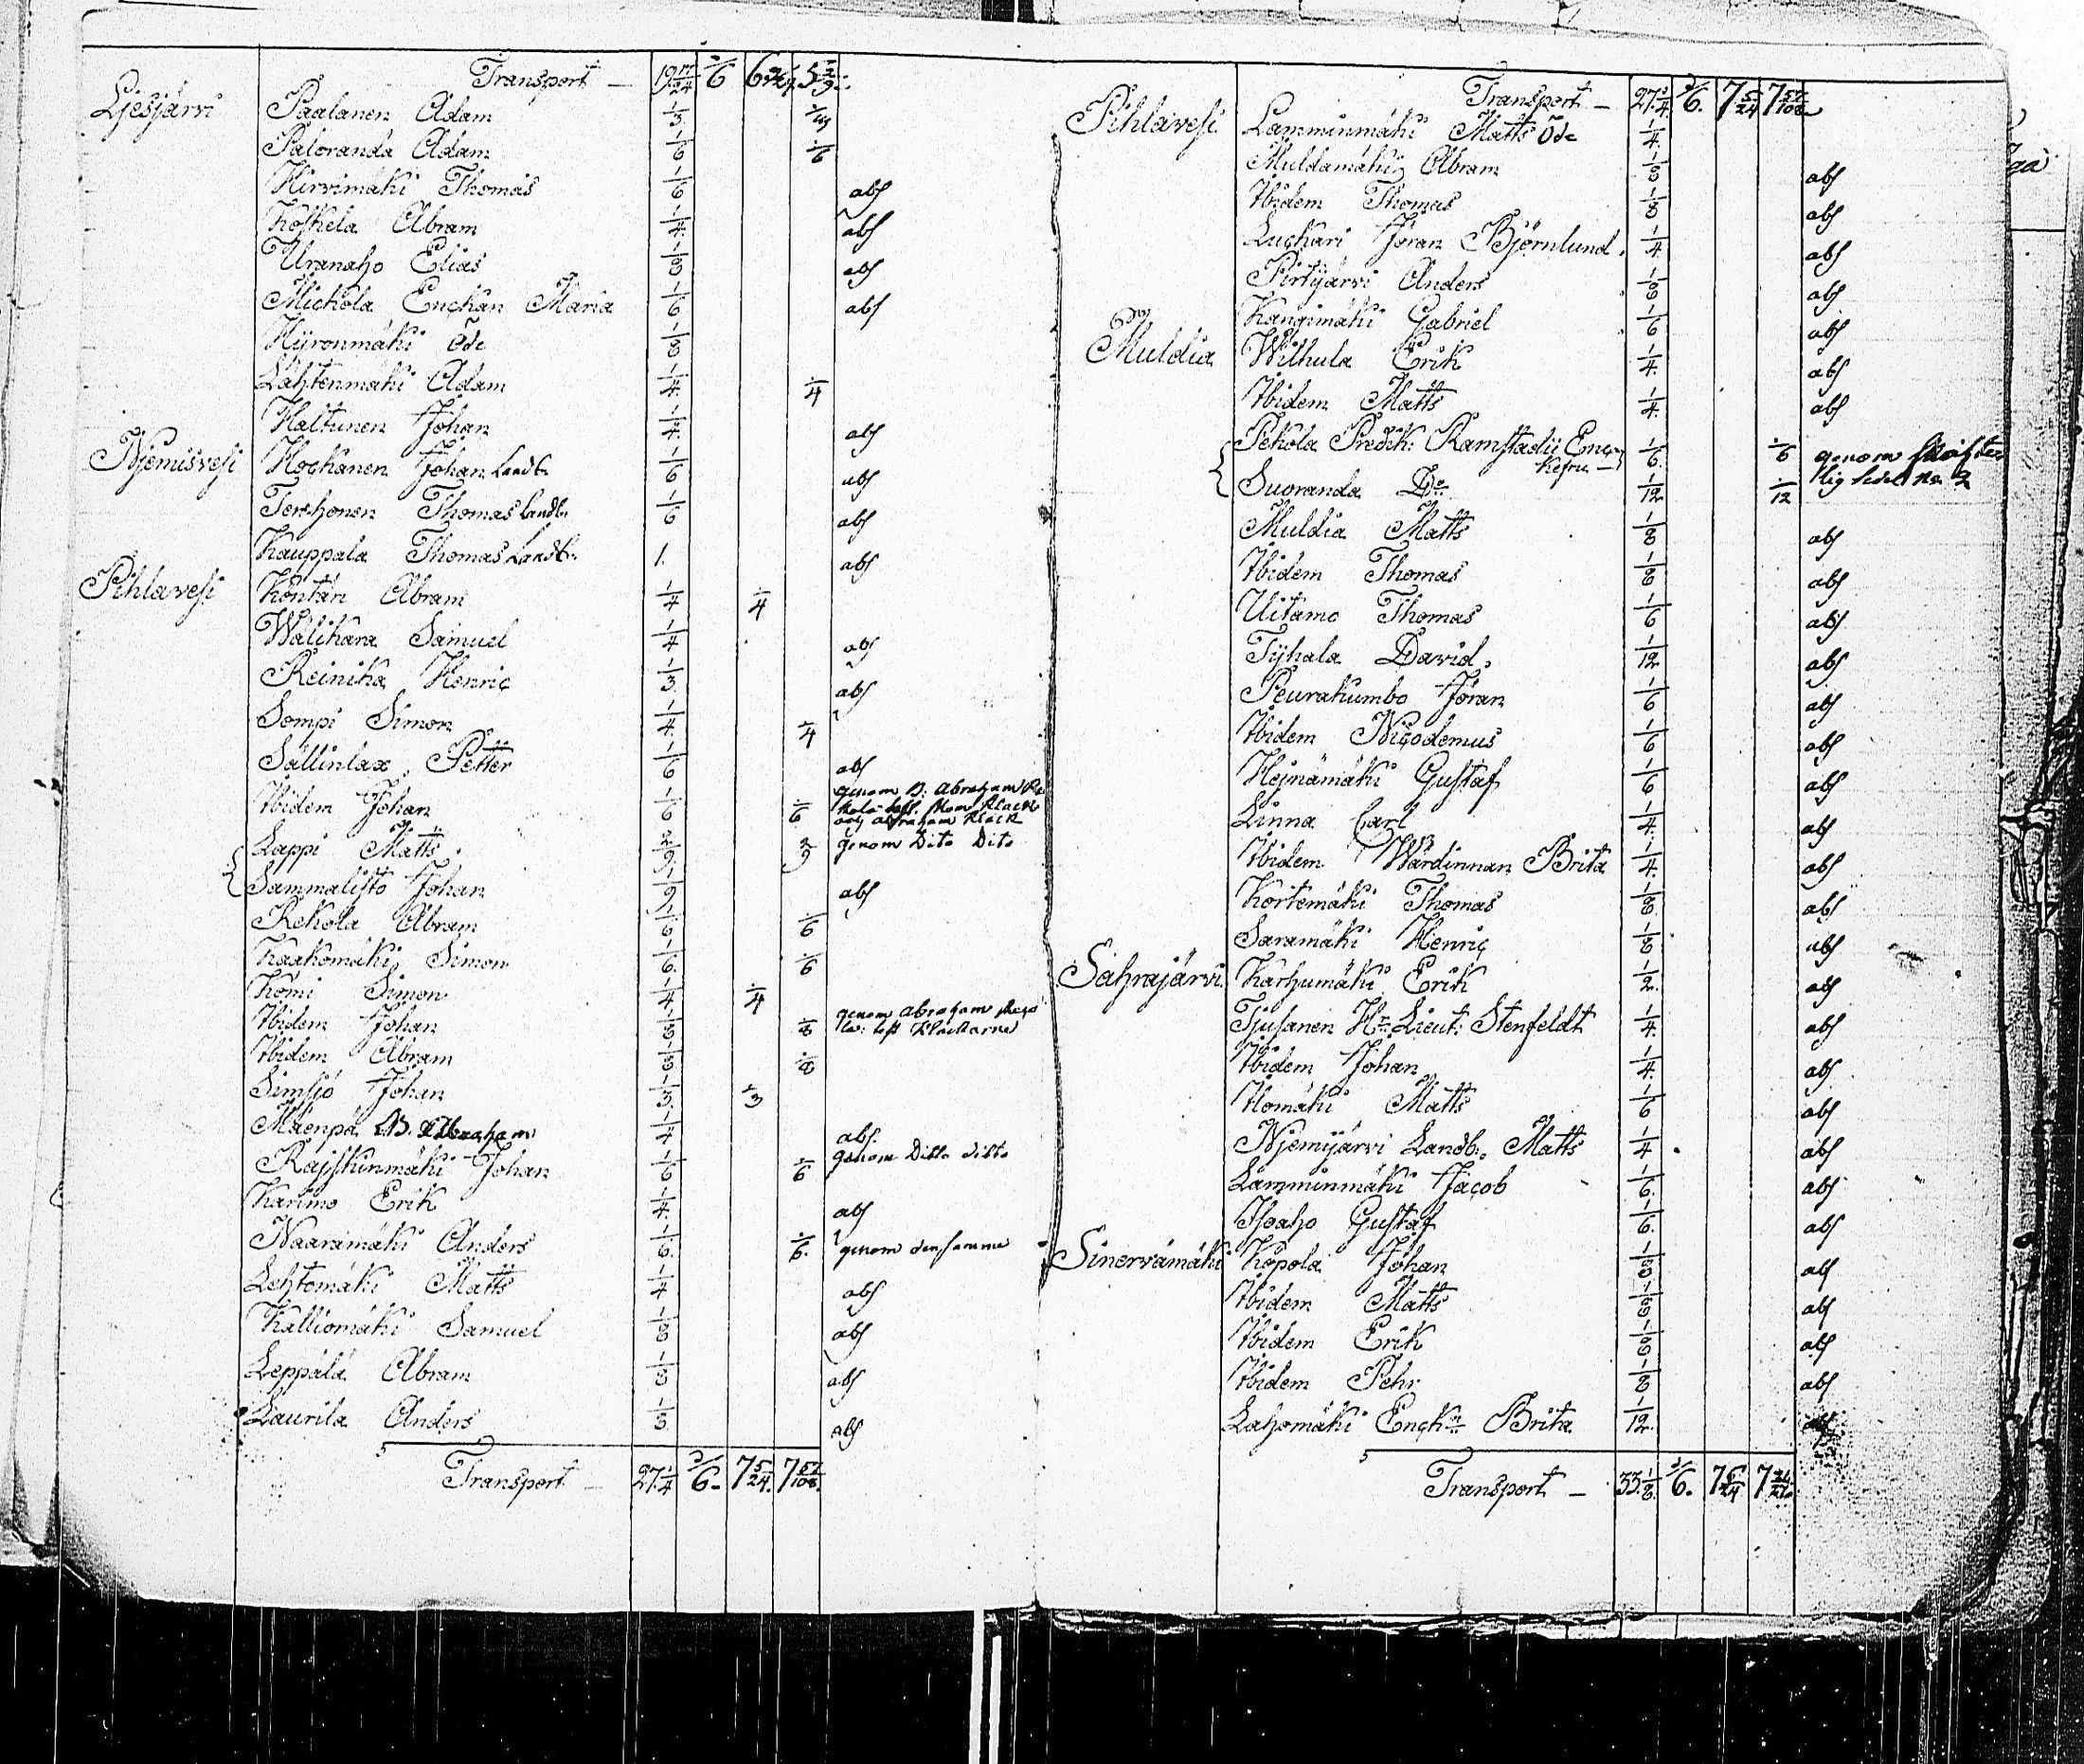 Transport — 19 17/24 2/6 6
Liesjärvi Paalanen Adam 1/3
Paloranda Adam 1/6 1/6
Hirvimäki Thomas 1/6 abs
Koskela Abram 1/4 abs
Uranaho Elias 1/8 abs
Michola Enckan Maria 1/6 abs
Hyrönmäki Öde 1/8
Lähtenmäki Adam 1/4 1/4
Haltunen Johan 1/4 abs
Njemisvesi Hockanen Johan Landb. 1/6 abs
Terhonen Thomas Landb. 1/6 abs
Kauppala Thomas Landb. 1. abs
Pihlavesi Kontäri Abram 1/4 1/4
Wälikara Samuel 1/4 abs
Reinika Henric 1/3 abs
Sompi Simon 1/4 1/4
Sällinlax Petter 1/6 abs
Ibidem Johan 1/6 1/6 genom B: Abraham
och Abraham Klack
Lappi Matts 2/9 2/9 genom Dito Dito
Sammalisto Johan 1/9 abs
Rekola Abram 1/6 1/6
Kaakomäki Simon 1/6 1/6
Kömi Simon 1/4 1/4
Ibidem Johan 1/8 1/8 genom Abraham
Ibidem Abram 1/8 1/8
Simsjö Johan 1/3 1/3
Mäenpä B. Abraham 1/4 abs.
Rajskinmäki Johan 1/6 1/6 genom Ditto ditto
Karimo Erik 1/4 abs
Naaramäki Anders 1/6. 1/6. genom densamma
Lehtomäki Matts 1/4 abs
Kalliomäki Samuel 1/8 abs
Leppälä Abram 1/8 abs
Laurila Anders 1/3 abs
Transport — 27 1/4 2/6 7 5/24 7 57/108
Transport — 27 1/4 2/6. 7 5/24 7 57/108
Pihlavesi Lamminmäki Matts Öde 1/4
Muldamäki Abram 1/8 abs
Ibidem Thomas 1/8 abs
Luckari Jöran Björnlund 1/4 abs
Pirtijärvi Anders 1/8 abs
Kangimäki Gabriel 1/6 abs
Muldia Wilhula Erik 1/4 abs
Ibidem Matts 1/4 abs
Pekola Predik: Ramstadii Enke 1/6 1/6 genom
Suoranda Do 1/12 1/12
Muldia Matts 1/8 abs
Ibidem Thomas 1/8 abs
Uitamo Thomas 1/6 abs
Tyhala David 1/12 abs
Peurakumbo Jöran 1/6 abs
Ibidem Nicodemus 1/6 abs
Hejnämäki Gustaf 1/6 abs
Linna Carl 1/4 abs
Ibidem Wärdinnan Brita 1/4 abs
Kortemäki Thomas 1/8 abs
Saramäki Henric 1/8 abs
Sahrajärvi Karhumäki Erik 1/2 abs
Tjusanen Hr. Lieut: Stenfeldt 1/4 abs
Ibidem Johan 1/4 abs
Homäki Matts 1/6 abs
Njemijärvi Landb. Matts 1/4 abs
Lamminmäki Jacob 1/6 abs
Isoaho Gustaf 1/6. abs
Sinervämäki Kopola Johan 1/8 abs
Ibidem Matts 1/8 abs
Ibidem Erik 1/8 abs
Ibidem Pehr 1/8 abs
Lahomäki Enckn Brita 1/12
Transport — 33 1/8 2/6. 7 5/24 7